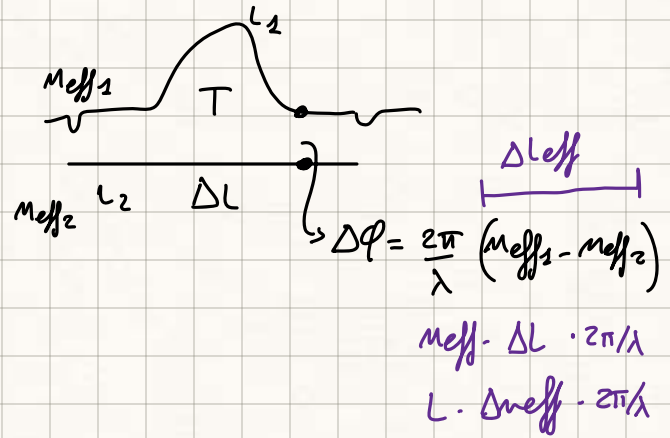 L1
neff1
T
L2 ΔL
neff2
ΔLeff
Δφ = 2π/λ (neff1 - neff2)
neff · ΔL · 2π/λ
L · Δneff · 2π/λ